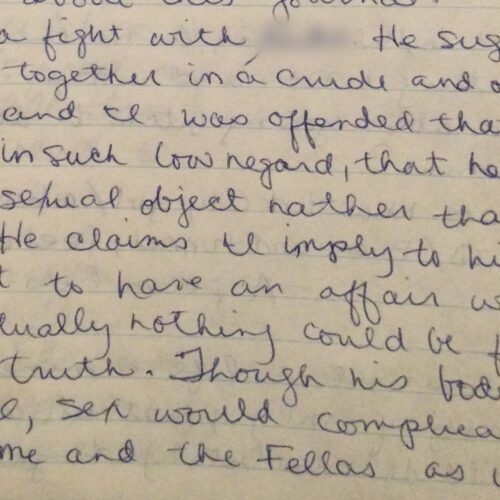 a fight with He sug
together in a crude and
and I was offended that
in such low regard, that he
sexual object rather tha
He claims I imply to hi
t to have an affair w
ually nothing could be f
truth. Though his bod
e, sex would complica
me and the Fellas as